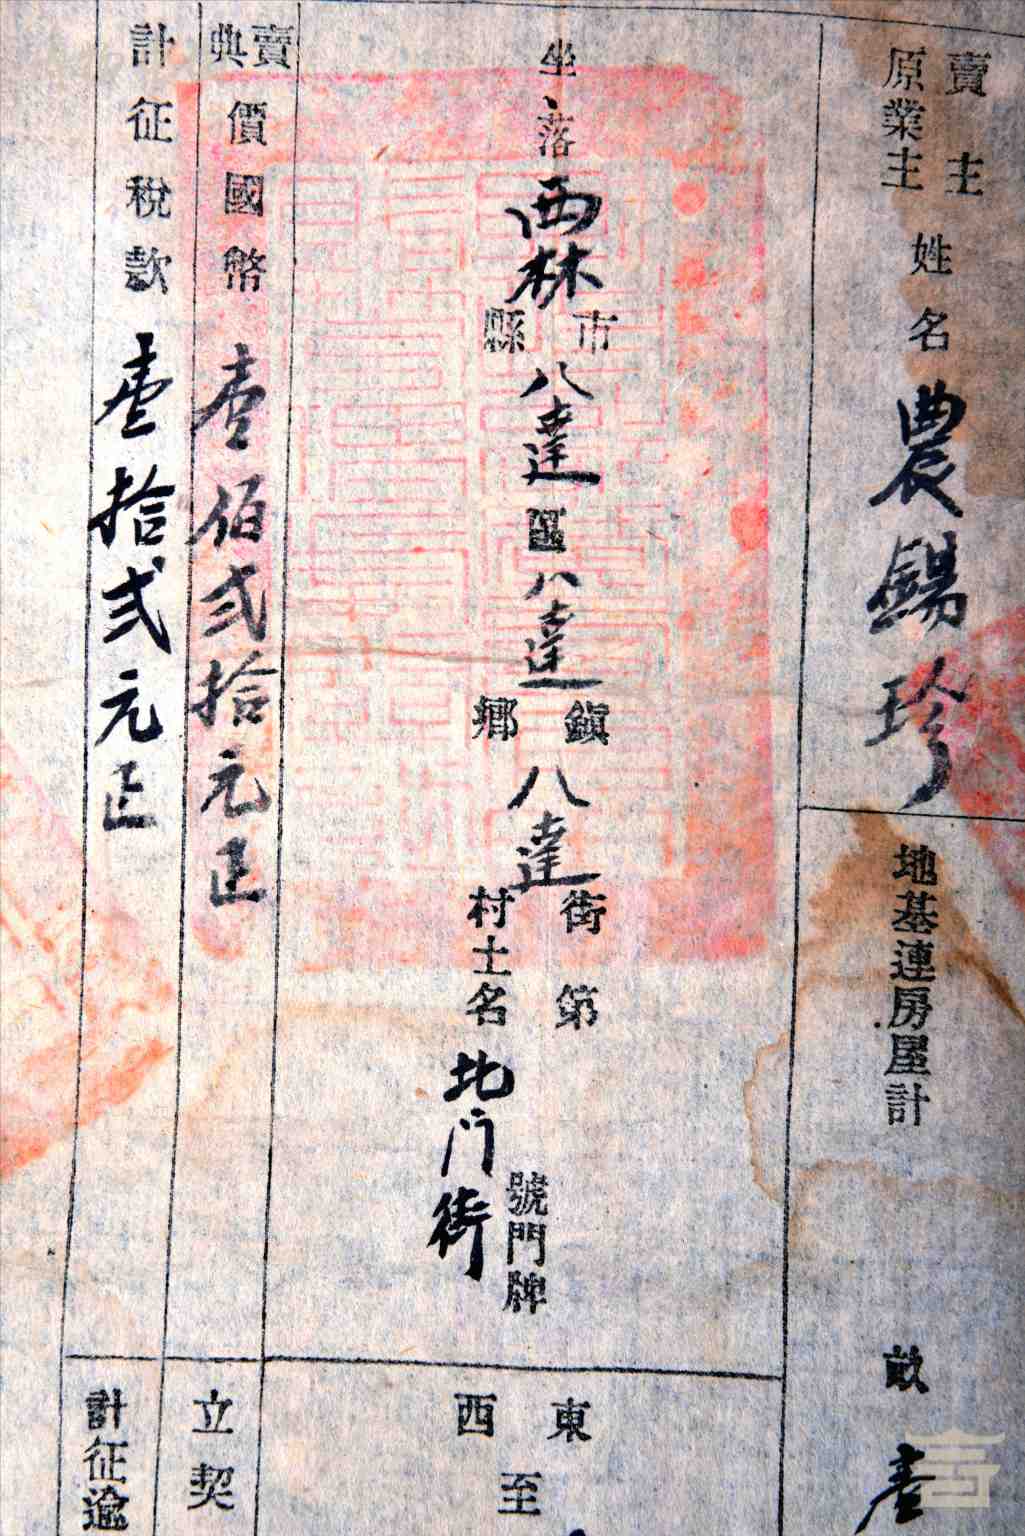 賣主
原業主
姓名農錫珍
地基連房屋計
畝
壹
坐落西林
市
縣
八達區八達
鎮
鄉
八達
街第
村土名
北门街
號門牌
東
西
至
賣
典
價國幣壹佰弍拾元正
立契
計征稅款壹拾弍元正
計征逾